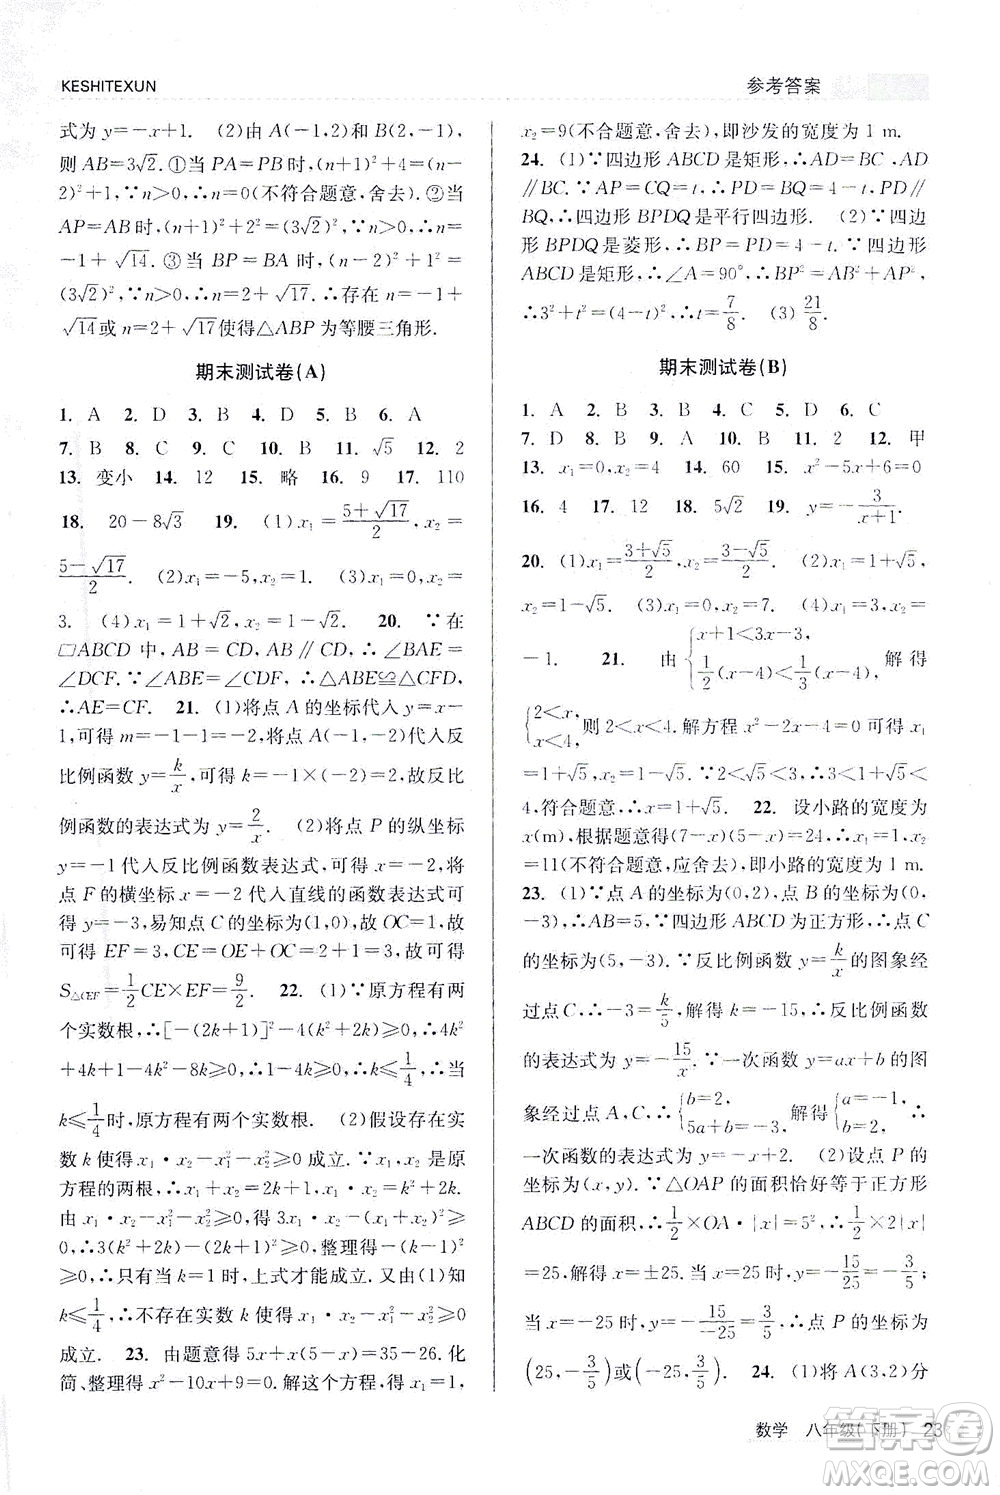 KESHITEXUN
参考答案
式为y=-x+1. (2)由A(-1,2)和B(2,-1),
则AB=3√2.①当PA=PB时,(n+1)²+4=(n-
2)²+1,∵n>0,∴n=0(不符合题意,舍去).②当
AP=AB时,(n+1)²+2²=(3√2)²,∵n>0,∴n=
-1+√14.③当BP=BA时,(n-2)²+1²=
(3√2)²,∵n>0,∴n=2+√17.∴存在n=-1+
√14或n=2+√17使得△ABP为等腰三角形.
期末测试卷(A)
1. A 2. D 3. B 4. D 5. B 6. A
7. B 8. C 9. C 10. B 11. √5 12. 2
13. 变小 14. 12 15. 略 16. 9 17. 110
18. 20-8√3 19. (1)x₁=(5+√17)/2,x₂=
(5-√17)/2. (2)x₁=-5,x₂=1. (3)x₁=0,x₂=
3. (4)x₁=1+√2,x₂=1-√2. 20. ∵在
▱ABCD中,AB=CD,AB∥CD,∴∠BAE=
∠DCF.∵∠ABE=∠CDF,∴△ABE≌△CFD,
∴AE=CF. 21. (1)将点A的坐标代入y=x-
1,可得m=-1-1=-2,将点A(-1,-2)代入反
比例函数y=k/x,可得k=-1×(-2)=2,故反比
例函数的表达式为y=2/x. (2)将点P的纵坐标
y=-1代入反比例函数表达式,可得x=-2,将
点F的横坐标x=-2代入直线的函数表达式,可
得y=-3,易知点C的坐标为(1,0),故OC=1,故
可得EF=3,CE=OE+OC=2+1=3,故可得
S△CEF=1/2CE×EF=9/2. 22. (1)∵原方程有两
个实数根,∴[-(2k+1)]²-4(k²+2k)≥0,∴4k²
+4k+1-4k²-8k≥0,∴1-4k≥0,∴k≤1/4.∴当
k≤1/4时,原方程有两个实数根. (2)假设存在实
数k使得x₁·x₂-x₁²-x₂²≥0成立.∵x₁,x₂是原
方程的两根,∴x₁+x₂=2k+1,x₁·x₂=k²+2k.
由x₁·x₂-x₁²-x₂²≥0,得3x₁·x₂-(x₁+x₂)²≥
0,∴3(k²+2k)-(2k+1)²≥0,整理得-(k-1)²≥
0,∴只有当k=1时,上式才能成立.又∵由(1)知
k≤1/4,∴不存在实数k使得x₁·x₂-x₁²-x₂²≥0
成立. 23. 由题意得5x+x(5-x)=35-26.化
简、整理得x²-10x+9=0.解这个方程,得x₁=1,
x₂=9(不合题意,舍去),即沙发的宽度为1 m.
24. (1)∵四边形ABCD是矩形,∴AD=BC,AD
∥BC.∵AP=CQ=t,∴PD=BQ=4-t,PD∥
BQ,∴四边形BPDQ是平行四边形. (2)∵四边
形BPDQ是菱形,∴BP=PD=4-t.∵四边形
ABCD是矩形,∴∠A=90°,∴BP²=AB²+AP²,
∴3²+t²=(4-t)²,∴t=7/8. (3) 21/8
期末测试卷(B)
1. A 2. B 3. D 4. C 5. B 6. C
7. D 8. B 9. B 10. D 11. 2 12. 甲
13. x₁=0,x₂=4 14. 60 15. x²-5x+6=0
16. 4 17. 12 18. 5√2 19. y=-3/(x+1).
20. (1)x₁=(3+√5)/2,x₂=(3-√5)/2. (2)x₁=1+√5,
x₂=1-√5. (3)x₁=0,x₂=7. (4)x₁=3,x₂=
-1. 21. 由{x+1<3x-3, 1/2(x-4)<1/3(x-4), 解得
{2<x, x<4, 则2<x<4.解方程x²-2x-4=0可得x₁
=1+√5,x₂=1-√5.∵2<√5<3,∴3<1+√5<
4,符合题意,∴x=1+√5. 22. 设小路的宽度为
x(m),根据题意得(7-x)(5-x)=24,∴x₁=1,x₂
=11(不符合题意,应舍去),即小路的宽度为1 m.
23. (1)∵点A的坐标为(0,2),点B的坐标为(0,
-3),∴AB=5,∵四边形ABCD为正方形,∴点C
的坐标为(5,-3).∵反比例函数y=k/x的图象经
过点C,∴-3=k/5,解得k=-15,∴反比例函数
的表达式为y=-15/x.∵一次函数y=ax+b的图
象经过点A,C,∴{b=2, 5a+b=-3, 解得{a=-1, b=2, ∴
一次函数的表达式为y=-x+2. (2)设点P的
坐标为(x,y).∵△OAP的面积恰好等于正方形
ABCD的面积,∴1/2×OA·|x|=5²,∴1/2×2|x|
=25,解得x=±25.当x=25时,y=-15/25=-3/5;
当x=-25时,y=-15/-25=3/5.∴点P的坐标为
(25,-3/5)或(-25,3/5). 24. (1)将A(3,2)分
数学 八年级(下册) 23
答案圈
MXQE.COM